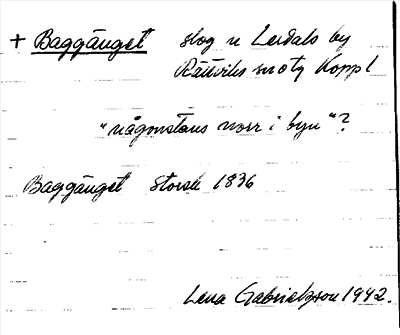 + Baggänget skog n Lerdals by
Rättviks sn o tg Koppl
"någonstans norr i byn"?
Baggänget Storsk 1836
Lena Gabrielsson 1942.